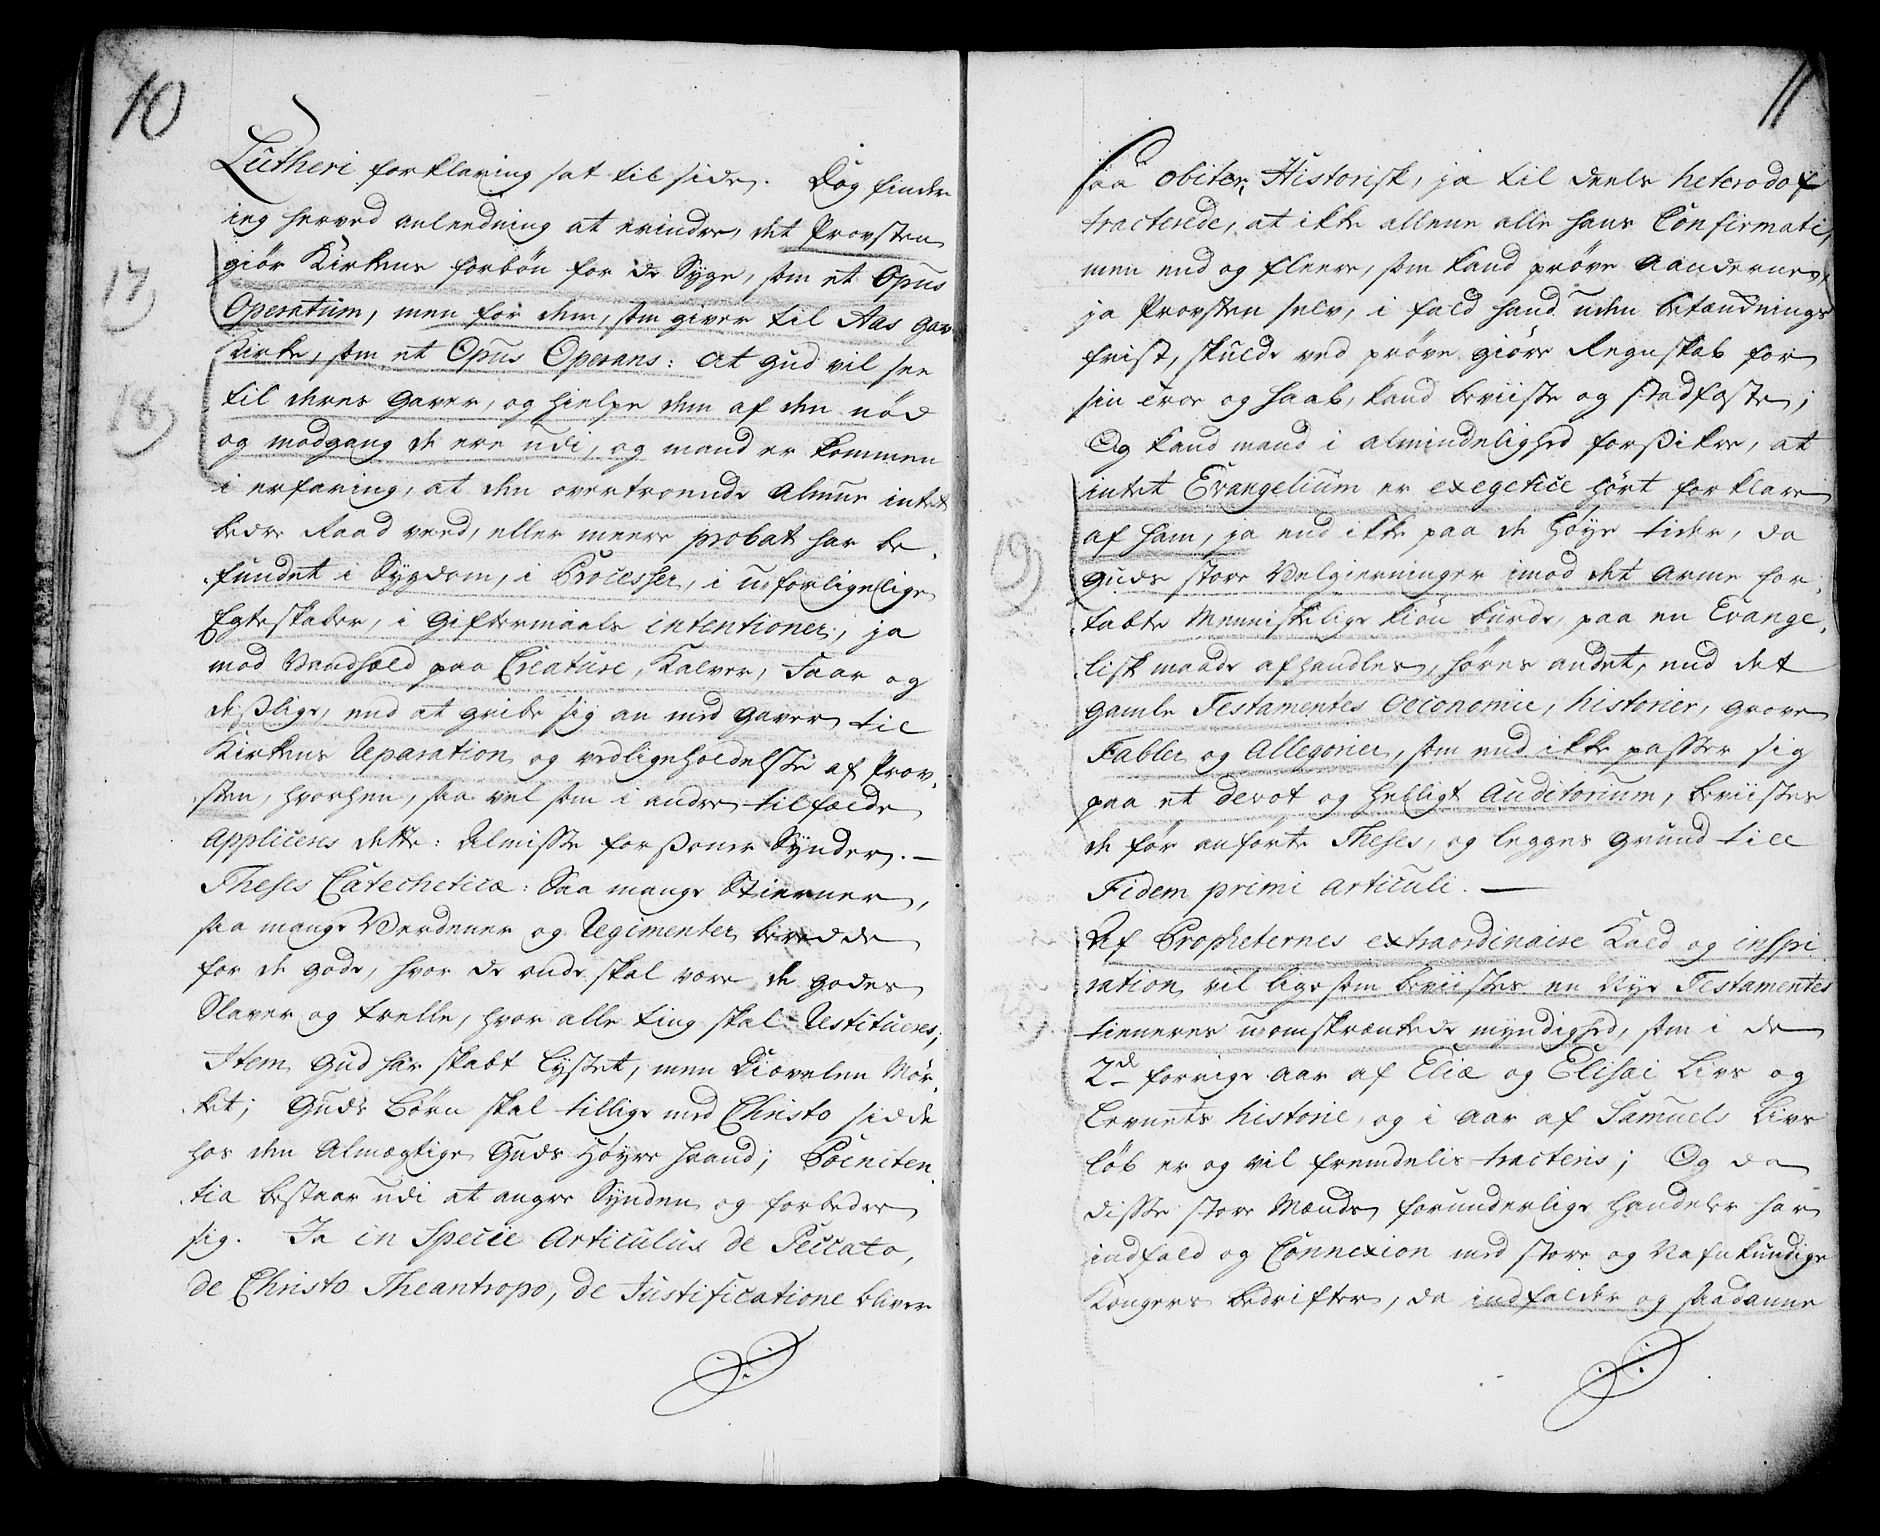 10
Lutheri forklaring sat til side. Dog finder
ieg herved anleedning at erindre, det Provsten
giør Kirkens forbøn for de Syge, som et Opus
17)
Operatum, men for dem, som giver til Aas gav
Kirke, som et Opus Operans: at Gud vil see
18)
til deres gaver, og hielpe dem af den nød
og modgang de ere udi, og mand er kommen
i erfaring, at den overtroende Almue intet
bedre Raad veed, eller meere probat har be-
fundet i Sygdom, i Processer, i uforligelige
Egteskaber, i Giftermaals intentioner, ja
mod Vanheld paa Creature, Kalver, Faar og
deslige, end at gribe sig an med gaver til
Kirkens Reparation og vedligeholdelse af Prov-
sten, hvorhen, saa vel som i andre tilfælde
appliceres dette: Almisse forsoner Synder. —
Theses Catecheticæ: Saa mange Stierner,
saa mange Verdener og Regimenter beredde
for de gode, hvor de onde skal være de godes
Slaver og trelle, hvor alle ting skal Restitueres;
Item Gud har skabt Lyset, men Diævelen Mør-
ket; Guds Børn skal tillige med Christo sidde
hos den Almægtige Guds Høyre Haand; Poeniten-
tia bestaar udi at angre Synden og forbedre
sig. Ja in Specie Articulus de Peccato,
de Christo Theantropo, de Justificatione bliver
11
saa obiter, Historisk, ja til deels heterodox
tracterede, at ikke allene alle hans Confirmati,
men end og fleere, som kand prøve Aanderne,
ja Provsten selv, i fald hand uden betænknings
frist, skulde ved prøve giøre Regnskab for
sin troe og haab, kand beviise og stadfæste;
Og kand mand i almindelighed forsikre, at
intet Evangelium er exegetice hørt forklare
af ham, ja end ikke paa de Høye tider, da
19)
Guds store Velgierninger imod det arme for-
tabte Menniskelige kiøn burde, paa en Evange-
lisk maade afhandles, høres andet, end det
gamle Testamentes Oeconomie, historier, grove
Fabler og Allegorier, som end ikke passer sig
paa et devot og helligt Auditorium, beviistes
de før anførte Theses, og legges grund till
Fidem primi articuli. —
Af Propheternes extraordinaire Kald og inspi-
ration vil lige som beviises en Nye Testamentes
tieneres uomskrænkede myndighed, som i de
2de forrige aar af Eliæ og Elisai Livs og
Levnets historie, og i aar af Samuels Livs
løb er og vil fremdelis tracteris; Og da
disse store Mænds forunderlige handeler har
indfald og Connexion med store og Nafnkundige
Kongers bedrifter, da indfalder og saadanne